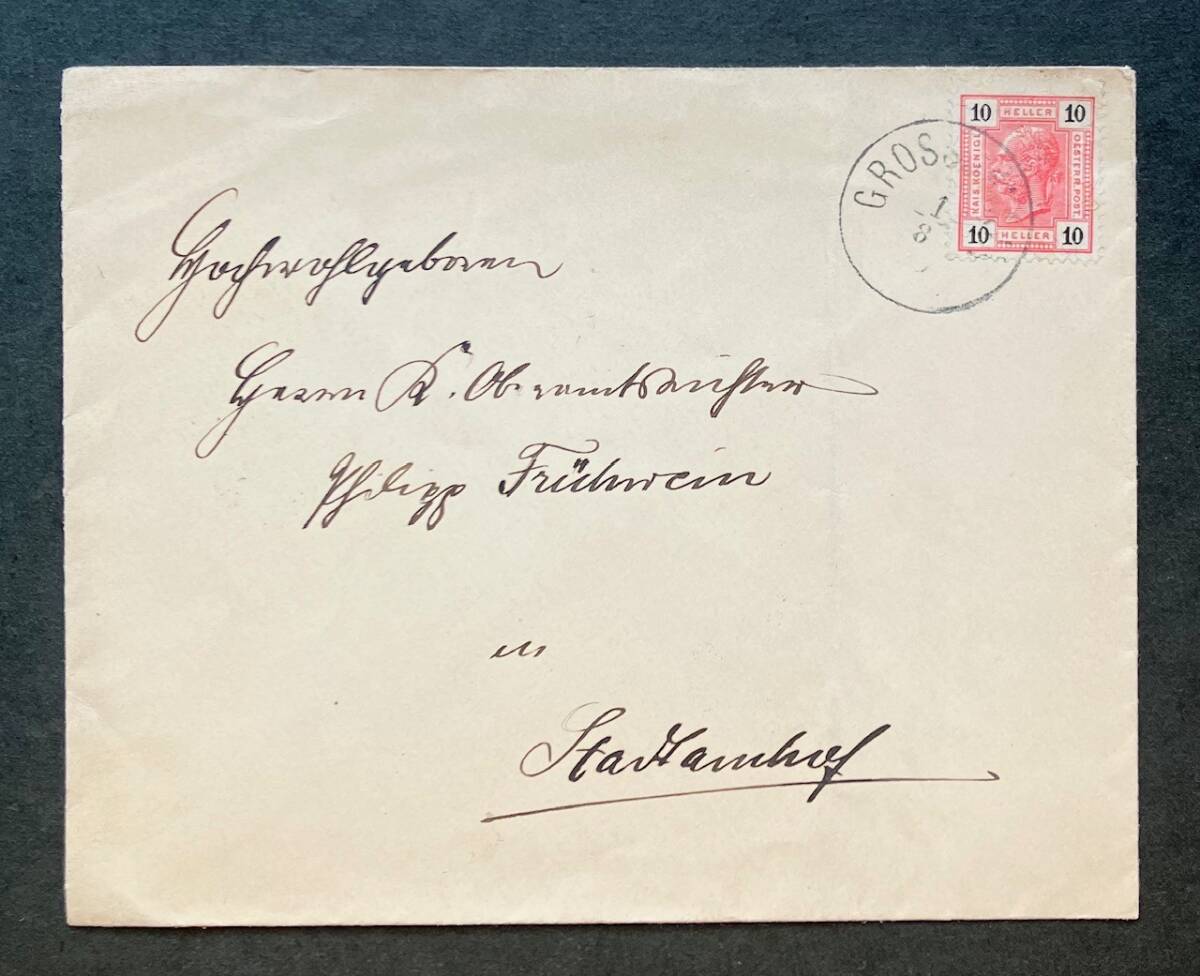 10 HELLER 10
KAIS. KOENIGL. OESTERR. POST.
10 HELLER 10
GROSS
1
8
Hochwohlgeboren
Herrn K. Oberamtsrichter
Philipp Frühwein
in
Stadtamhof